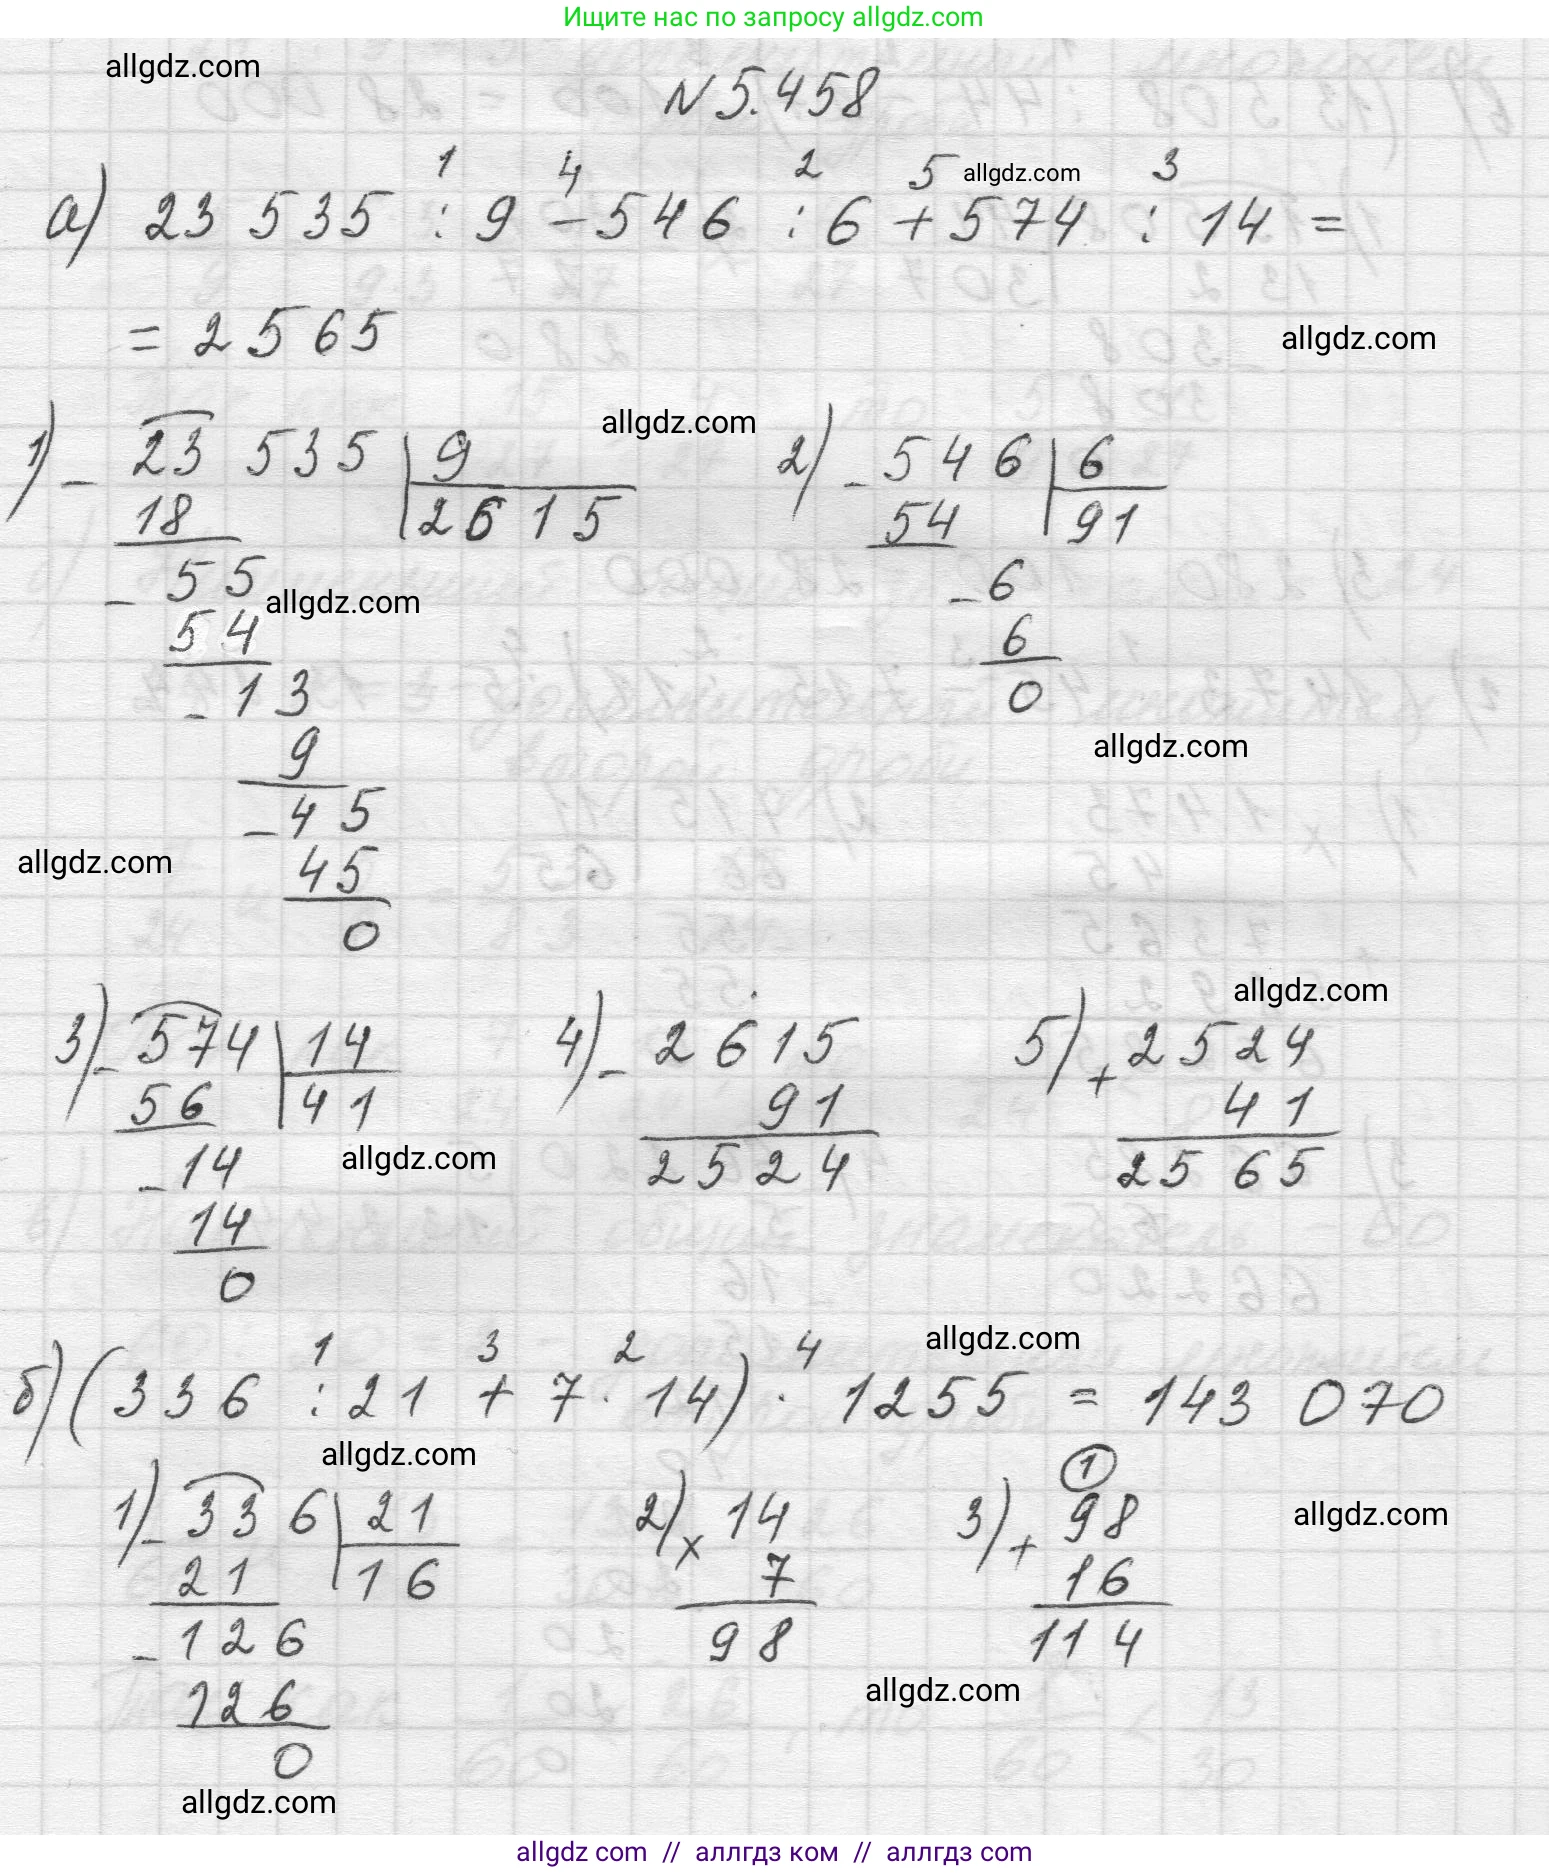 Ищите нас по запросу allgdz.com
allgdz.com
N 5.458
1 4 2 5 allgdz.com 3
а) 23 535 : 9 − 546 : 6 + 574 : 14 =
= 2565
allgdz.com
allgdz.com
1) − 23 535 | 9 2) − 546 | 6
18 | 2615 54 | 91
− 55 − 6
allgdz.com
54 6
− 13 0
allgdz.com
9
− 45
allgdz.com
45
0
allgdz.com
3) − 574 | 14 4) − 2615 5) + 2524
56 | 41 91 41
− 14 2524 2565
allgdz.com
14
0
allgdz.com
1 3 2 4
б) (336 : 21 + 7 · 14) · 1255 = 143 070
allgdz.com
1
1) − 336 | 21 2) × 14 3) + 98
allgdz.com
21 | 16 7 16
− 126 98 114
allgdz.com
126
0
allgdz.com
allgdz com // аллгдз ком // аллгдз com